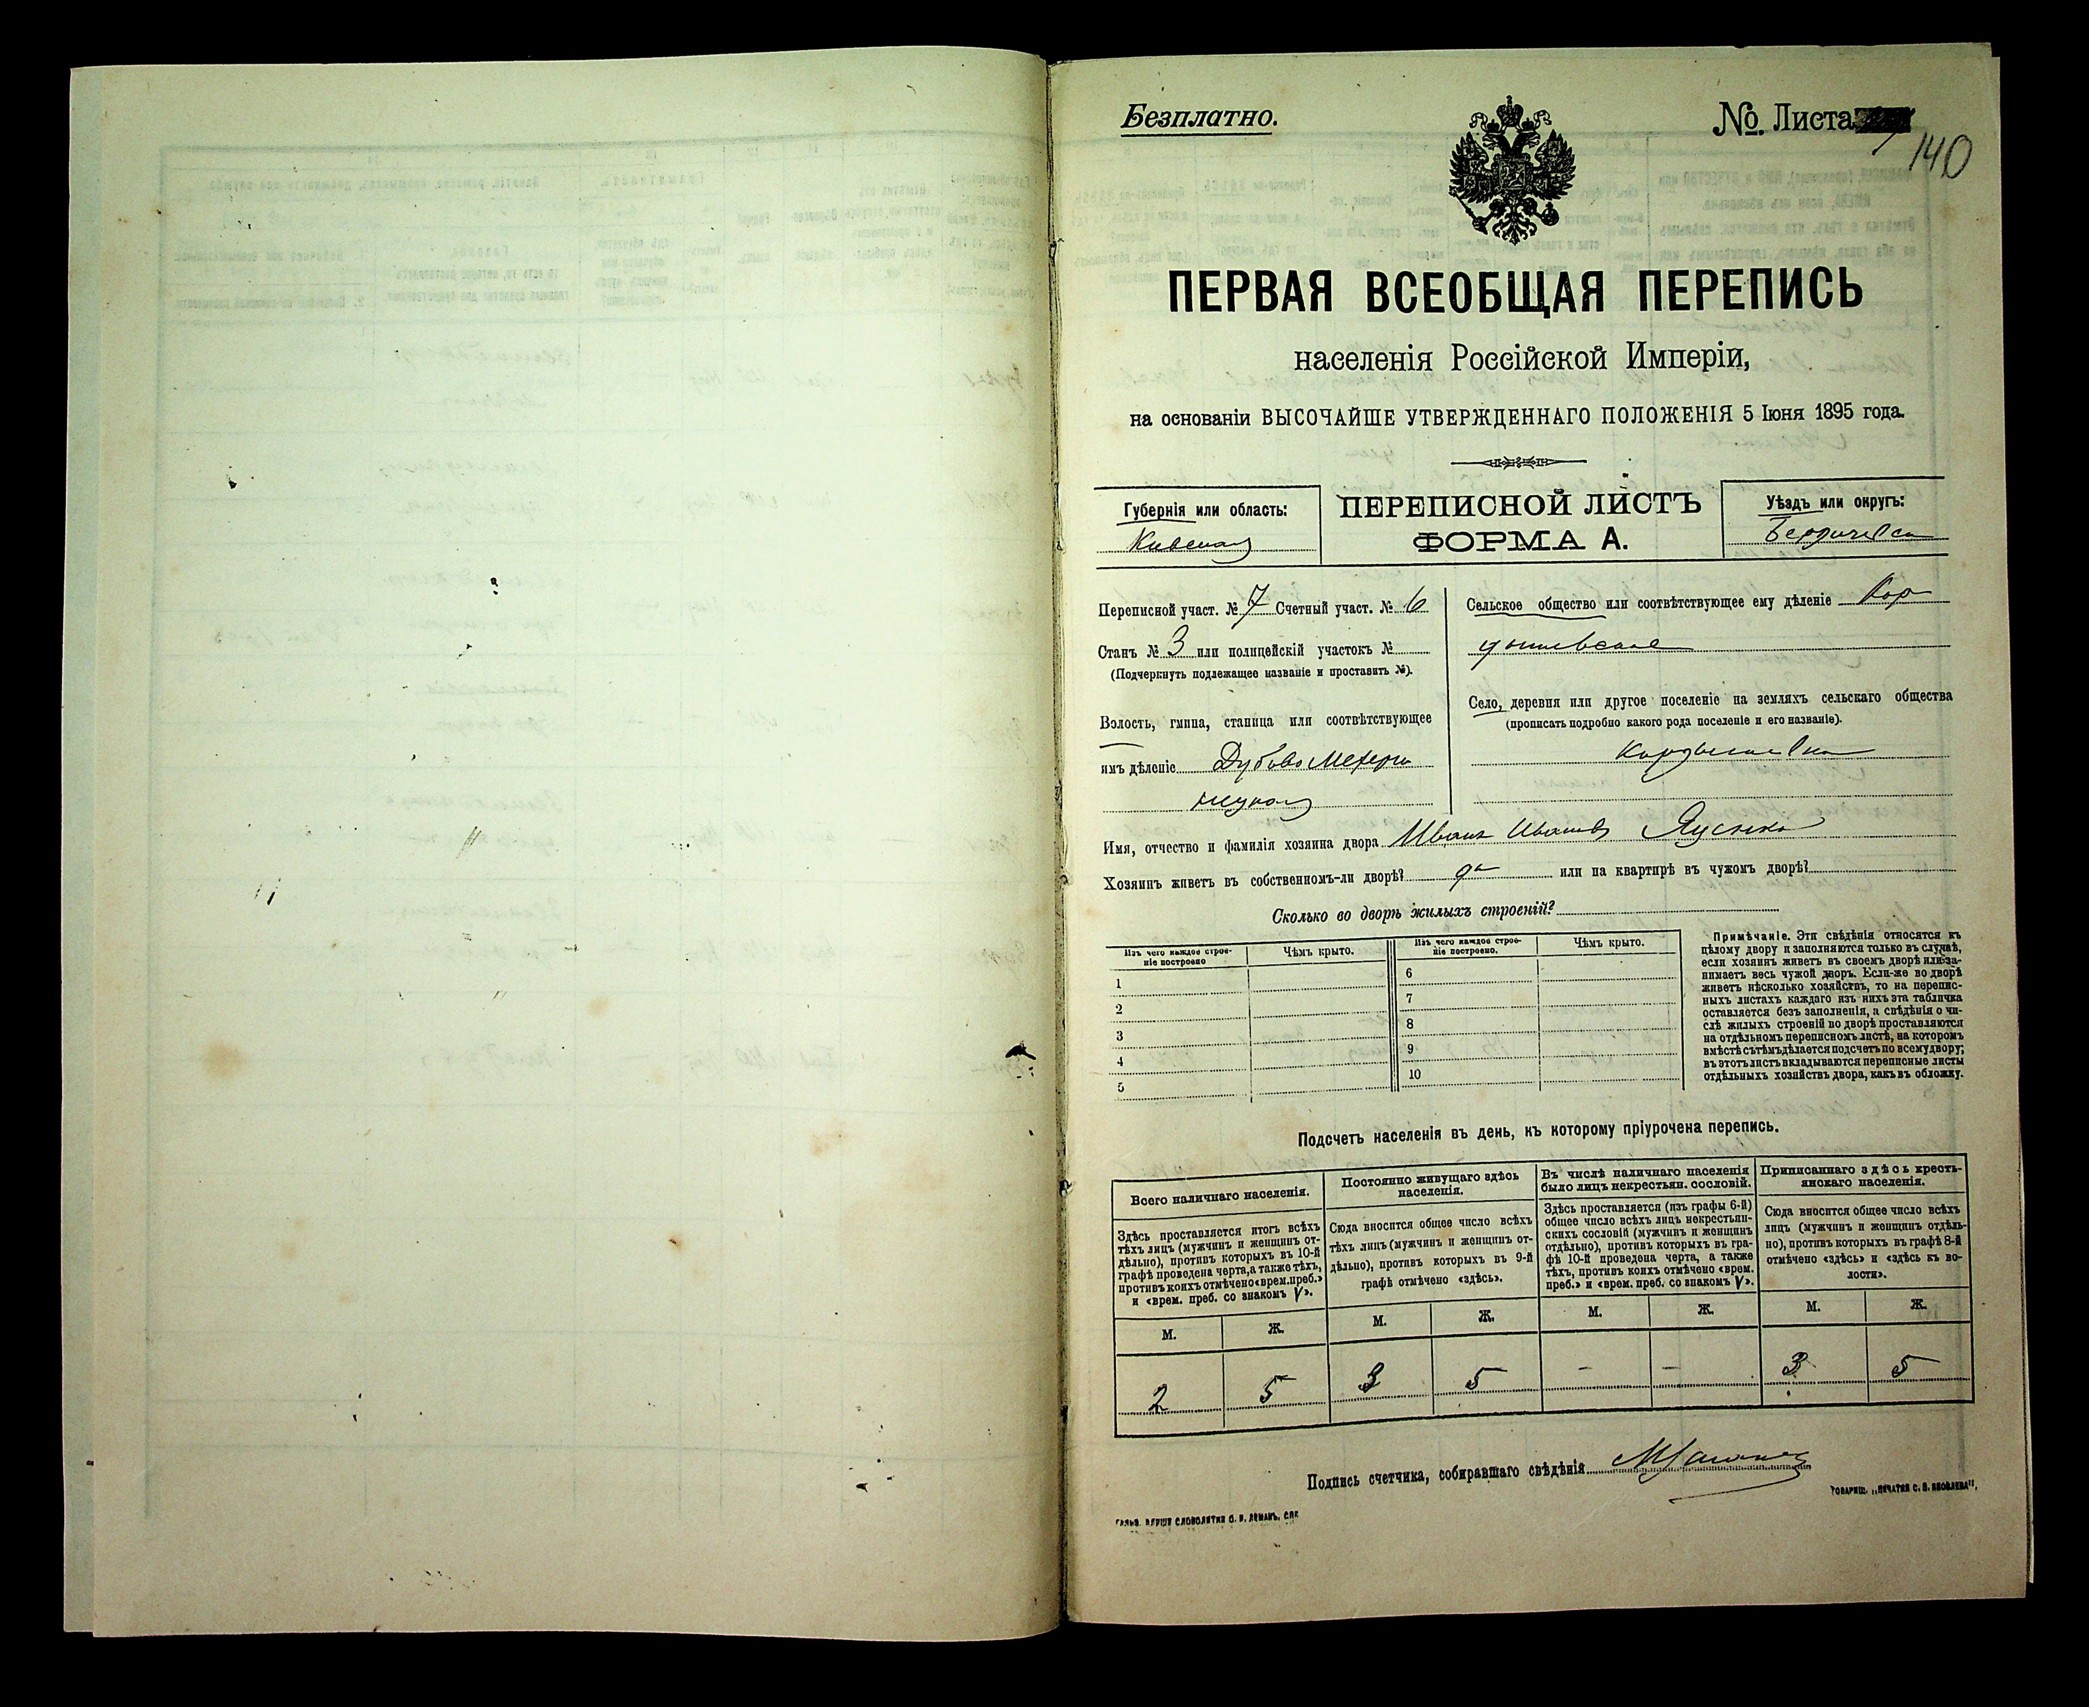 Безплатно.
№. Листа
140
ПЕРВАЯ ВСЕОБЩАЯ ПЕРЕПИСЬ
населенія Россійской Имперіи,
на основаніи ВЫСОЧАЙШЕ УТВЕРЖДЕННАГО ПОЛОЖЕНІЯ 5 Іюня 1895 года.
Губернія или область:
Киевская
ПЕРЕПИСНОЙ ЛИСТЪ
ФОРМА А.
Уѣздъ или округъ:
Бердичевск
Переписной участ. № 7 Счетный участ. № 6
Станъ № 3 или полицейскій участокъ №
(Подчеркнуть подлежащее названіе и проставить №).
Волость, гмина, станица или соотвѣтствующее
имъ дѣленіе Дубово Мехери
нецкая
Сельское общество или соотвѣтствующее ему дѣленіе Кор
дышевское
Село, деревня или другое поселеніе на земляхъ сельскаго общества
(прописать подробно какого рода поселеніе и его названіе).
Имя, отчество и фамилія хозяина двора Иванъ Ивановъ
Хозяинъ живетъ въ собственномъ-ли дворѣ? да или на квартирѣ въ чужомъ дворѣ?
Сколько во дворѣ жилыхъ строеній?
Изъ чего каждое строе-
ніе построено
Чѣмъ крыто.
1
2
3
4
5
Изъ чего каждое строе-
ніе построено.
Чѣмъ крыто.
6
7
8
9
10
Примѣчаніе. Эти свѣдѣнія относятся къ
цѣлому двору и заполняются только въ случаѣ,
если хозяинъ живетъ въ своемъ дворѣ или за-
нимаетъ весь чужой дворъ. Если-же во дворѣ
живетъ нѣсколько хозяйствъ, то на перепис-
ныхъ листахъ каждаго изъ нихъ эта табличка
оставляется безъ заполненія, а свѣдѣнія о чи-
слѣ жилыхъ строеній во дворѣ проставляются
на отдѣльномъ переписномъ листѣ, на которомъ
вмѣстѣ съ тѣмъ дѣлается подсчетъ по всему двору;
въ этотъ листъ вкладываются переписные листы
отдѣльныхъ хозяйствъ двора, какъ въ обложку.
Подсчетъ населенія въ день, къ которому пріурочена перепись.
Всего наличнаго населенія.
Здѣсь проставляется итогъ всѣхъ
тѣхъ лицъ (мужчинъ и женщинъ от-
дѣльно), противъ которыхъ въ 10-й
графѣ проведена черта, а также тѣхъ,
противъ коихъ отмѣчено «врем. преб.»
и «врем. преб. со знакомъ V».
М. Ж.
2 5
Постоянно живущаго здѣсь
населенія.
Сюда вносится общее число всѣхъ
тѣхъ лицъ (мужчинъ и женщинъ от-
дѣльно), противъ которыхъ въ 9-й
графѣ отмѣчено «здѣсь».
М. Ж.
3 5
Въ числѣ наличнаго населенія
было лицъ некрестьян. сословій.
Здѣсь проставляется (изъ графы 6-й)
общее число всѣхъ лицъ некрестьян-
скихъ сословій (мужчинъ и женщинъ
отдѣльно), противъ которыхъ въ гра-
фѣ 10-й проведена черта, а также
тѣхъ, противъ коихъ отмѣчено «врем.
преб.» и «врем. преб. со знакомъ V».
М. Ж.
– –
Приписаннаго здѣсь кресть-
янскаго населенія.
Сюда вносится общее число всѣхъ
лицъ (мужчинъ и женщинъ отдѣль-
но), противъ которыхъ въ графѣ 8-й
отмѣчено «здѣсь» и «здѣсь къ во-
лости».
М. Ж.
3 5
Подпись счетчика, собиравшаго свѣдѣнія
ТОВАРИЩ. „ПЕЧАТНЯ С. П. ЯКОВЛЕВА".
СЛОВОЛИТНИ О. И. ЛЕМАНЪ. СПБ